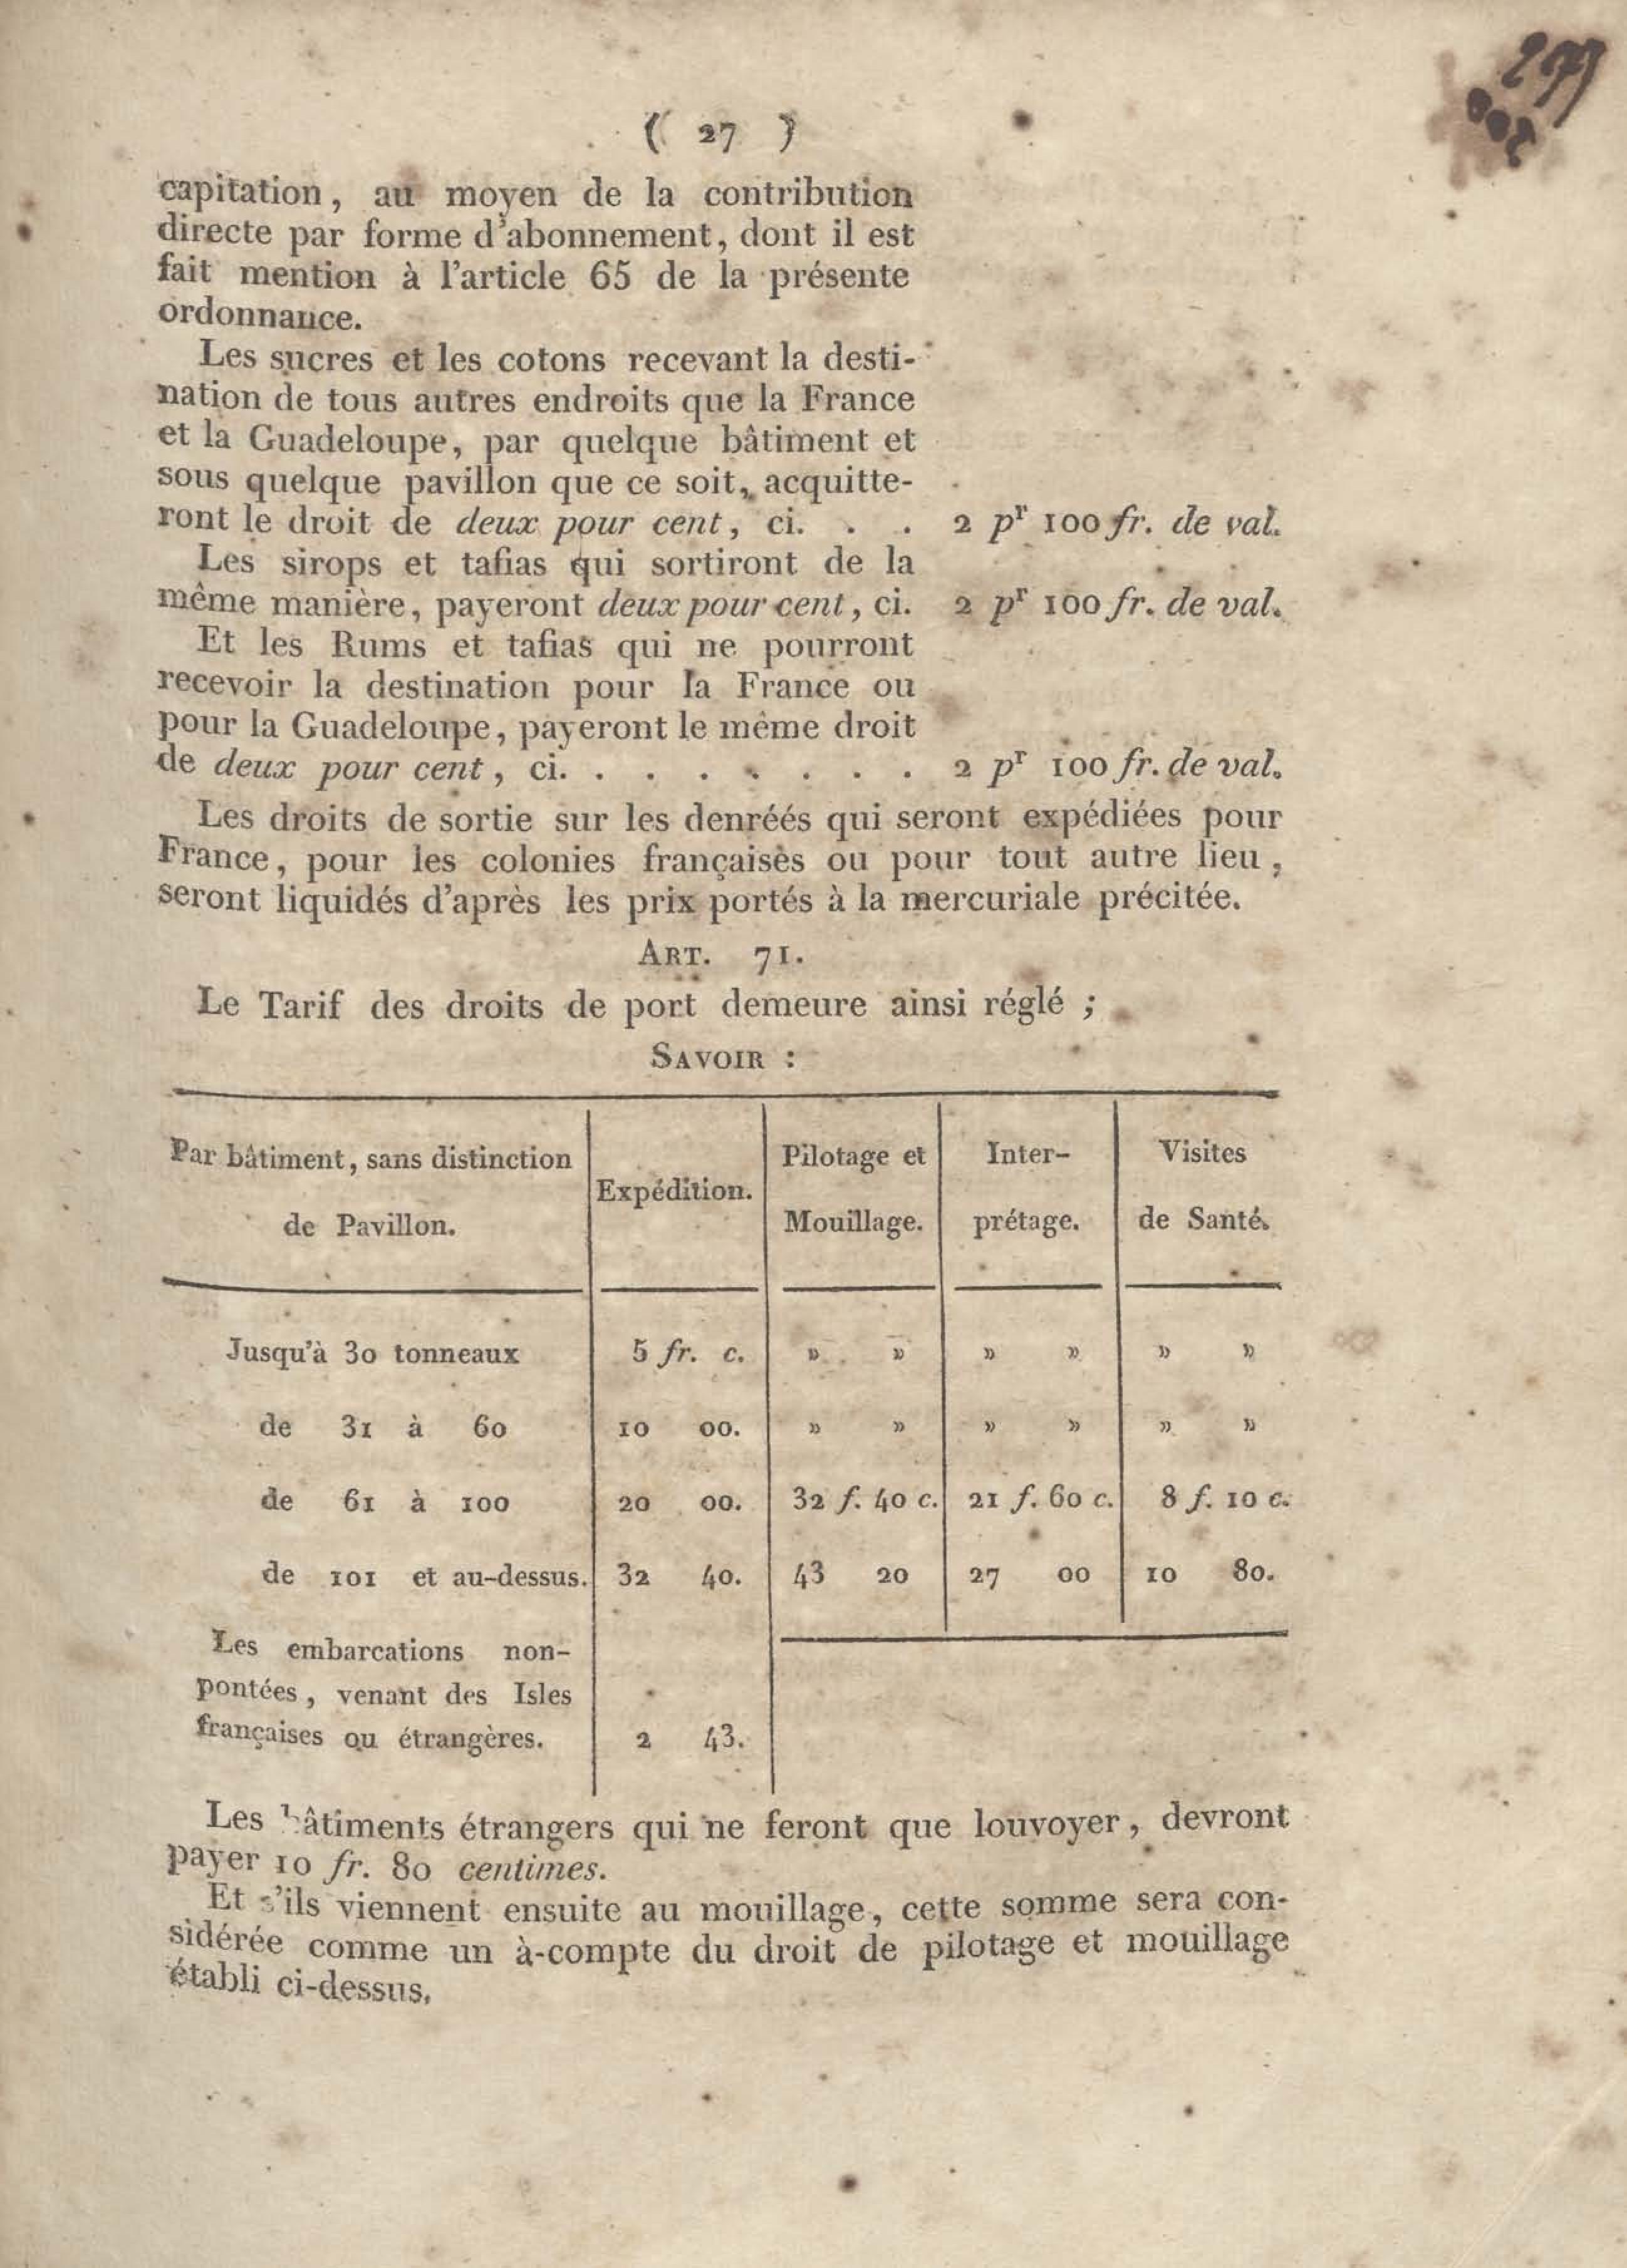 ( 27 )
capitation, au moyen de la contribution
directe par forme d'abonnement, dont il est
fait mention à l'article 65 de la présente
ordonnance.
Les sucres et les cotons recevant la desti-
nation de tous autres endroits que la France
et la Guadeloupe, par quelque bâtiment et
sous quelque pavillon que ce soit, acquitte-
ront le droit de deux pour cent, ci. . . 2 pr 100 fr. de val.
Les sirops et tafias qui sortiront de la
même manière, payeront deux pour cent, ci. 2 pr 100 fr. de val.
Et les Rums et tafias qui ne pourront
recevoir la destination pour la France ou
pour la Guadeloupe, payeront le même droit
de deux pour cent, ci. . . . . . . . 2 pr 100 fr. de val.
Les droits de sortie sur les denréés qui seront expédiées pour
France, pour les colonies françaises ou pour tout autre lieu,
seront liquidés d'après les prix portés à la mercuriale précitée.
ART. 71.
Le Tarif des droits de port demeure ainsi réglé ;
SAVOIR :
Par bâtiment, sans distinction
de Pavillon.
Expédition.
Pilotage et
Mouillage.
Inter-
prétage.
Visites
de Santé.
Jusqu'à 30 tonneaux 5 fr. c. » » » » » »
de 31 à 60 10 00. » » » » » »
de 61 à 100 20 00. 32 f. 40 c. 21 f. 60 c. 8 f. 10 c.
de 101 et au-dessus. 32 40. 43 20 27 00 10 80.
Les embarcations non-
pontées, venant des Isles
françaises ou étrangères. 2 43.
Les bâtiments étrangers qui ne feront que louvoyer, devront
payer 10 fr. 80 centimes.
Et s'ils viennent ensuite au mouillage, cette somme sera con-
sidérée comme un à-compte du droit de pilotage et mouillage
établi ci-dessus.